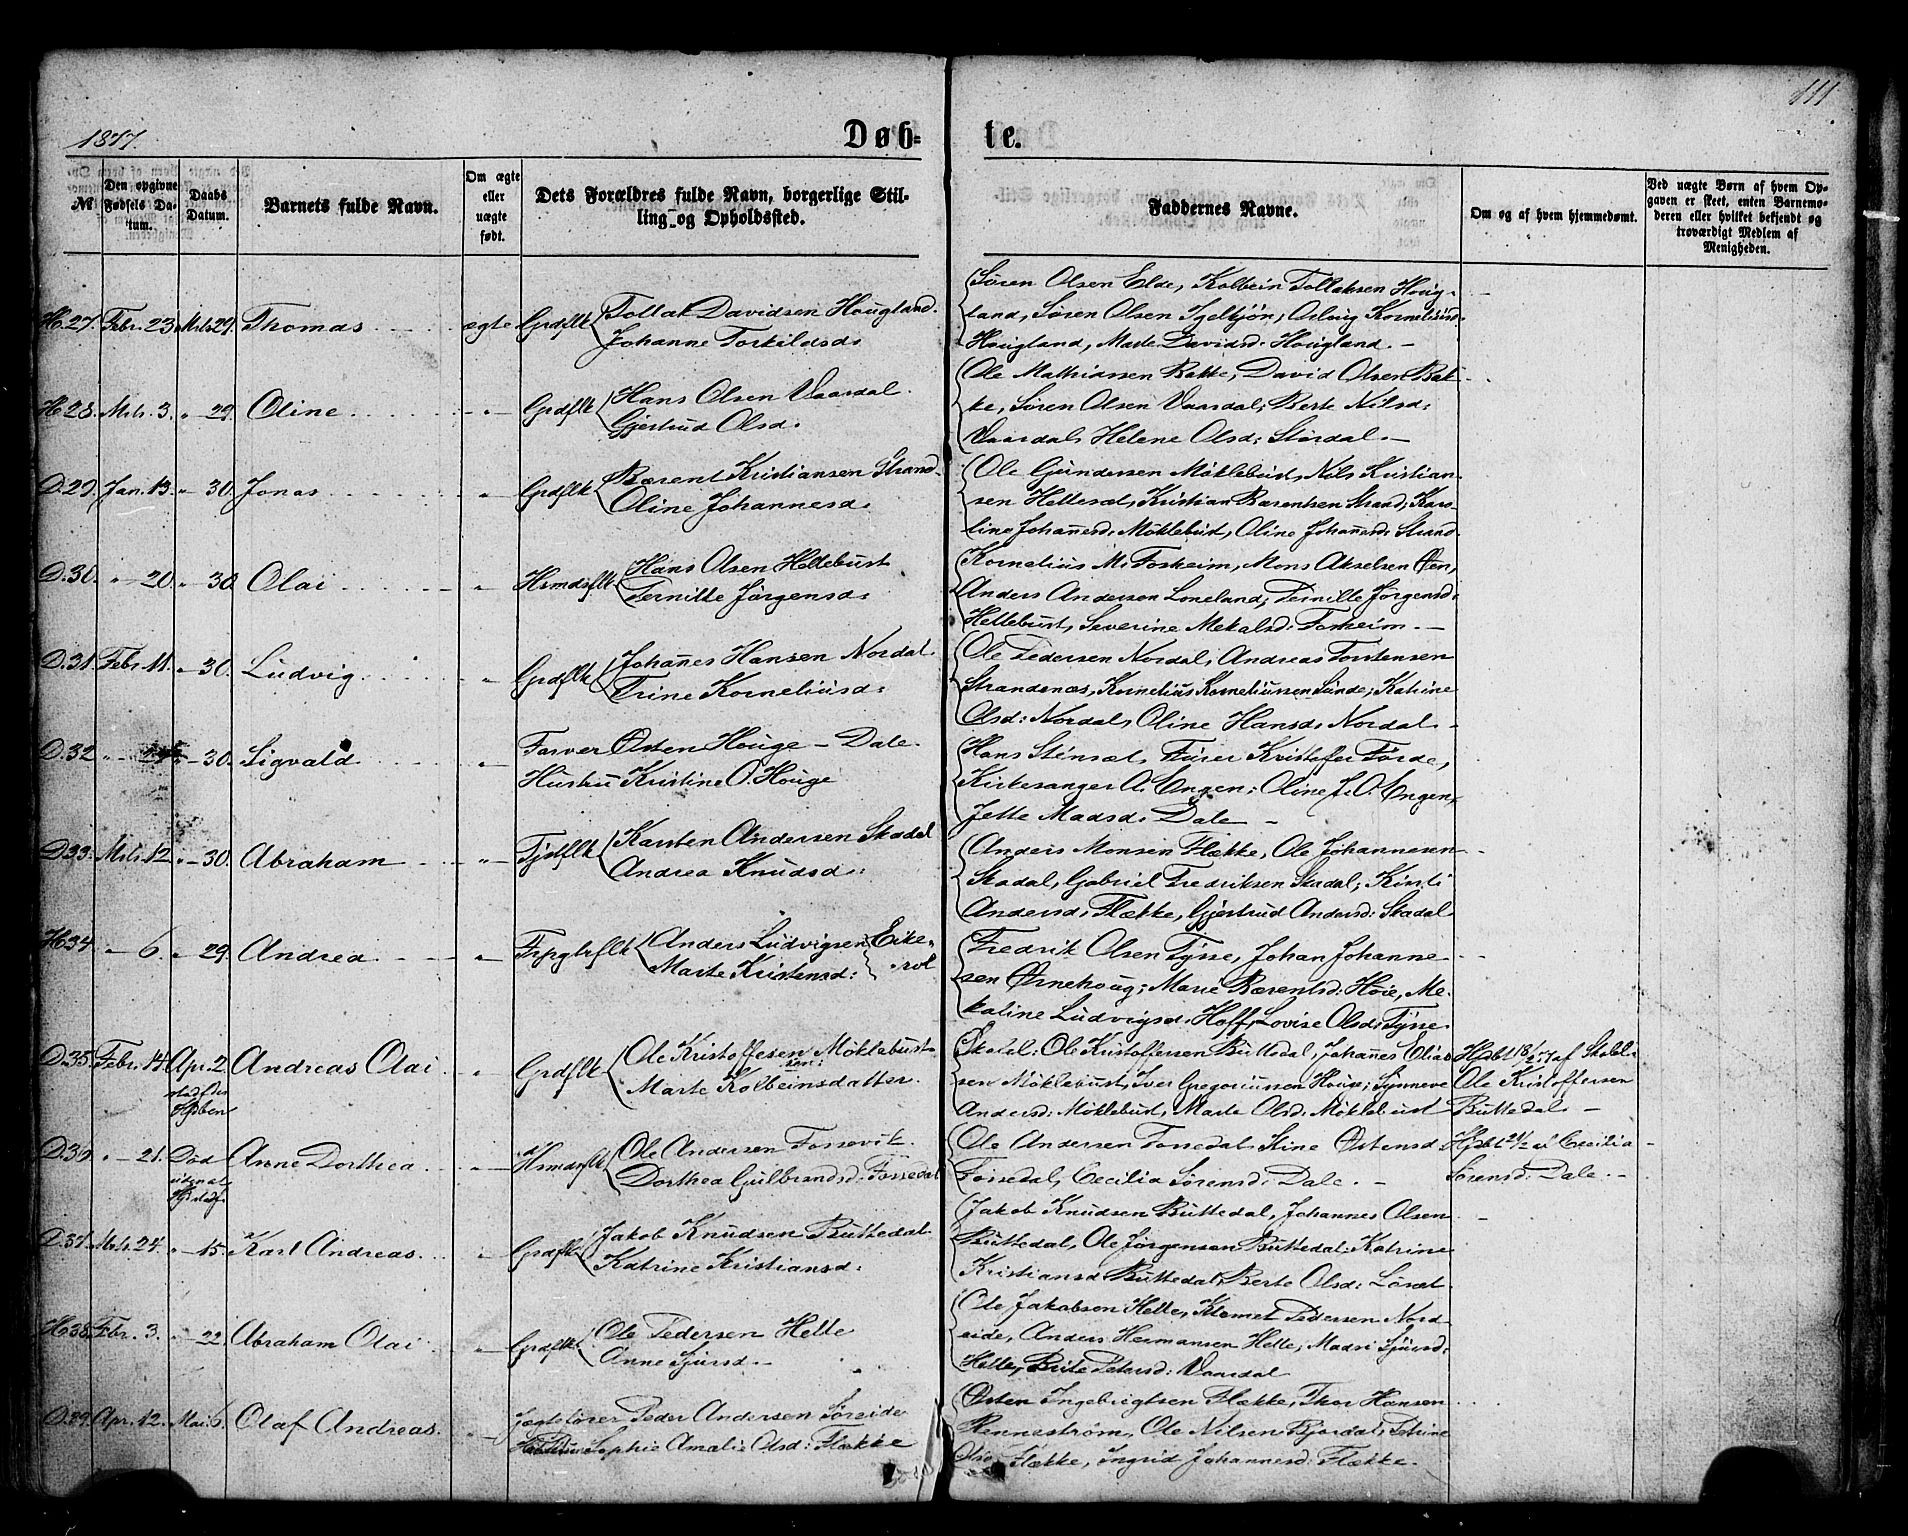 111
1877.
Døb- te.
№
Den opgivne Fødsels Da- tum.
Daabs Datum.
Barnets fulde Navn.
Om ægte eller uægte født.
Dets Forældres fulde Navn, borgerlige Stil- ling og Opholdssted.
Faddernes Navne.
Om og af hvem hjemmedømt.
Ved uægte Børn af hvem Op- gaven er skeet, enten Barnemo- deren eller hvilket bekjendt og troværdigt Medlem af Menigheden.
H.27. Febr. 23 Mrts 29. Thomas ægte Grdflk Tollak Davidsen Hougland.
Johanne Torkildsd:
Søren Olsen Elde, Kolbein Tollaksen Houg-
land, Søren Olsen Igeltjøn, Oslaug Korneliusd:
Hougland, Marte Davidsd: Hougland. -
H.28. Mrts. 3. " 29. Oline " Grdflk Hans Olsen Vaardal.
Gjertrud Olsd:
Ole Mathiassen Bakke, David Olsen Bak-
ke, Søren Olsen Vaardal; Berte Nilsd:
Vaardal, Helene Olsd: Stordal. -
D.29. Jan. 13. " 30. Jonas " Grdflk Bærent Kristiansen Strand.
Oline Johannesd:
Ole Gundersen Møklebust, Nils Kristian-
sen Hellesæt, Kristian Bærentsen Strand; Karo-
line Johañesd: Møklebust, Oline Johañesd: Strand.
D.30. " 20. " 30. Olai " Hsmdsflk Hans Olsen Hellebust
Pernille Jørgensd:
Kornelius M. Forsheim, Mons Akselsen Øen,
Anders Andersen Loneland; Pernille Jørgensd:
Hellebust, Severine Mekalsd: Forsheim. -
D.31. Febr. 11. " 30. Ludvig " Grdflk Johañes Hansen Nordal.
Trine Korneliusd:
Ole Pedersen Nordal, Andreas Torstensen
Strandenæs, Kornelius Korneliussen Sunde; Katrine
Olsd: Nordal, Oline Hansd: Nordal -
D.32 " " 30. Sigvald " Farver Østen Houge - Dale.
Hustru Kristine O. Houge
Hans Stensæt, Furer Kristofer Førde,
Kirkesanger A. Engen; Oline J. O. Engen,
Jette Madsd: Dale -
D.33. Mrts. 12. " 30. Abraham " Tjstflk Karsten Andersen Skadal
Andrea Knudsd:
Anders Monsen Flække, Ole Johannesen
Skadal, Gabriel Fredriksen Skadal; Kirsti
Andersd: Flække, Gjertrud Andersd: Skadal
H.34 " 6. " 29. Andrea " Anders Ludvigsen Eike-
Marte Kristensd:
Fredrik Olsen Tysse, Johan Johanne-
sen Ørnehoug; Marie Bærentsd: Høie, Me-
kaline Ludvigsd: Hoff, Lovise Olsd: Tysse.
D.35. Febr. 14. Apr. 2. Andreas Olai " Grdflk Ole Kristoffesen Møklebust
Marte Kolbeinsdatter.
Skolel: Ole Kristoffersen Buttedal, Johañes Elias-
sen Møklebust, Iver Gregoriussen Houge; Synneve
Andersd: Møklebust, Marte Olsd: Møklebust
Hjdbt 18/2 77 af Skolel:
Ole Kristoffersen
Buttedal. -
D.36 " 21. Død Anne Dorthea " Hsmdsflk Ole Andersen Fossevik.
Dorthea Gulbrandsd: Fossedal
Ole Andersen Fossedal, Stine Østensd
Fossedal, Cecilia Sørensd: Dale. -
Hjdbt 24/2 af Cecilia
Sørensd: Dale. -
D.37. Mrts. 24. " 15. Karl Andreas " Grdflk Jakob Knudsen Buttedal
Katrine Kristiansd:
Jakob Knudsen Buttedal, Johannes Olsen
Buttedal, Ole Jørgensen Buttedal; Katrine
Kristiansd Buttedal, Berte Olsd: Løsæt.
H.38. Febr. 3. " 22. Abraham Olai " Grdflk Ole Pedersen Helle
Anne Sjursd. -
Ole Jakobsen Helle, Klemet Pedersen Nord-
eide, Anders Hermansen Helle; Madsi Sjursd:
Helle, Brite Petersd: Vaardal
D.39. Apr. 12. Mai. 6. Olaf Andreas. " Jægtefører Peder Andersen Søreide
Hustru Sophie Amalie Olsd: Flække
Østen Ingebrigtsen Flække, Thor Hansen
Renneström, Ole Nilsen Bjordal; Stine
Olsd Flække, Ingrid Johannesd: Flække.